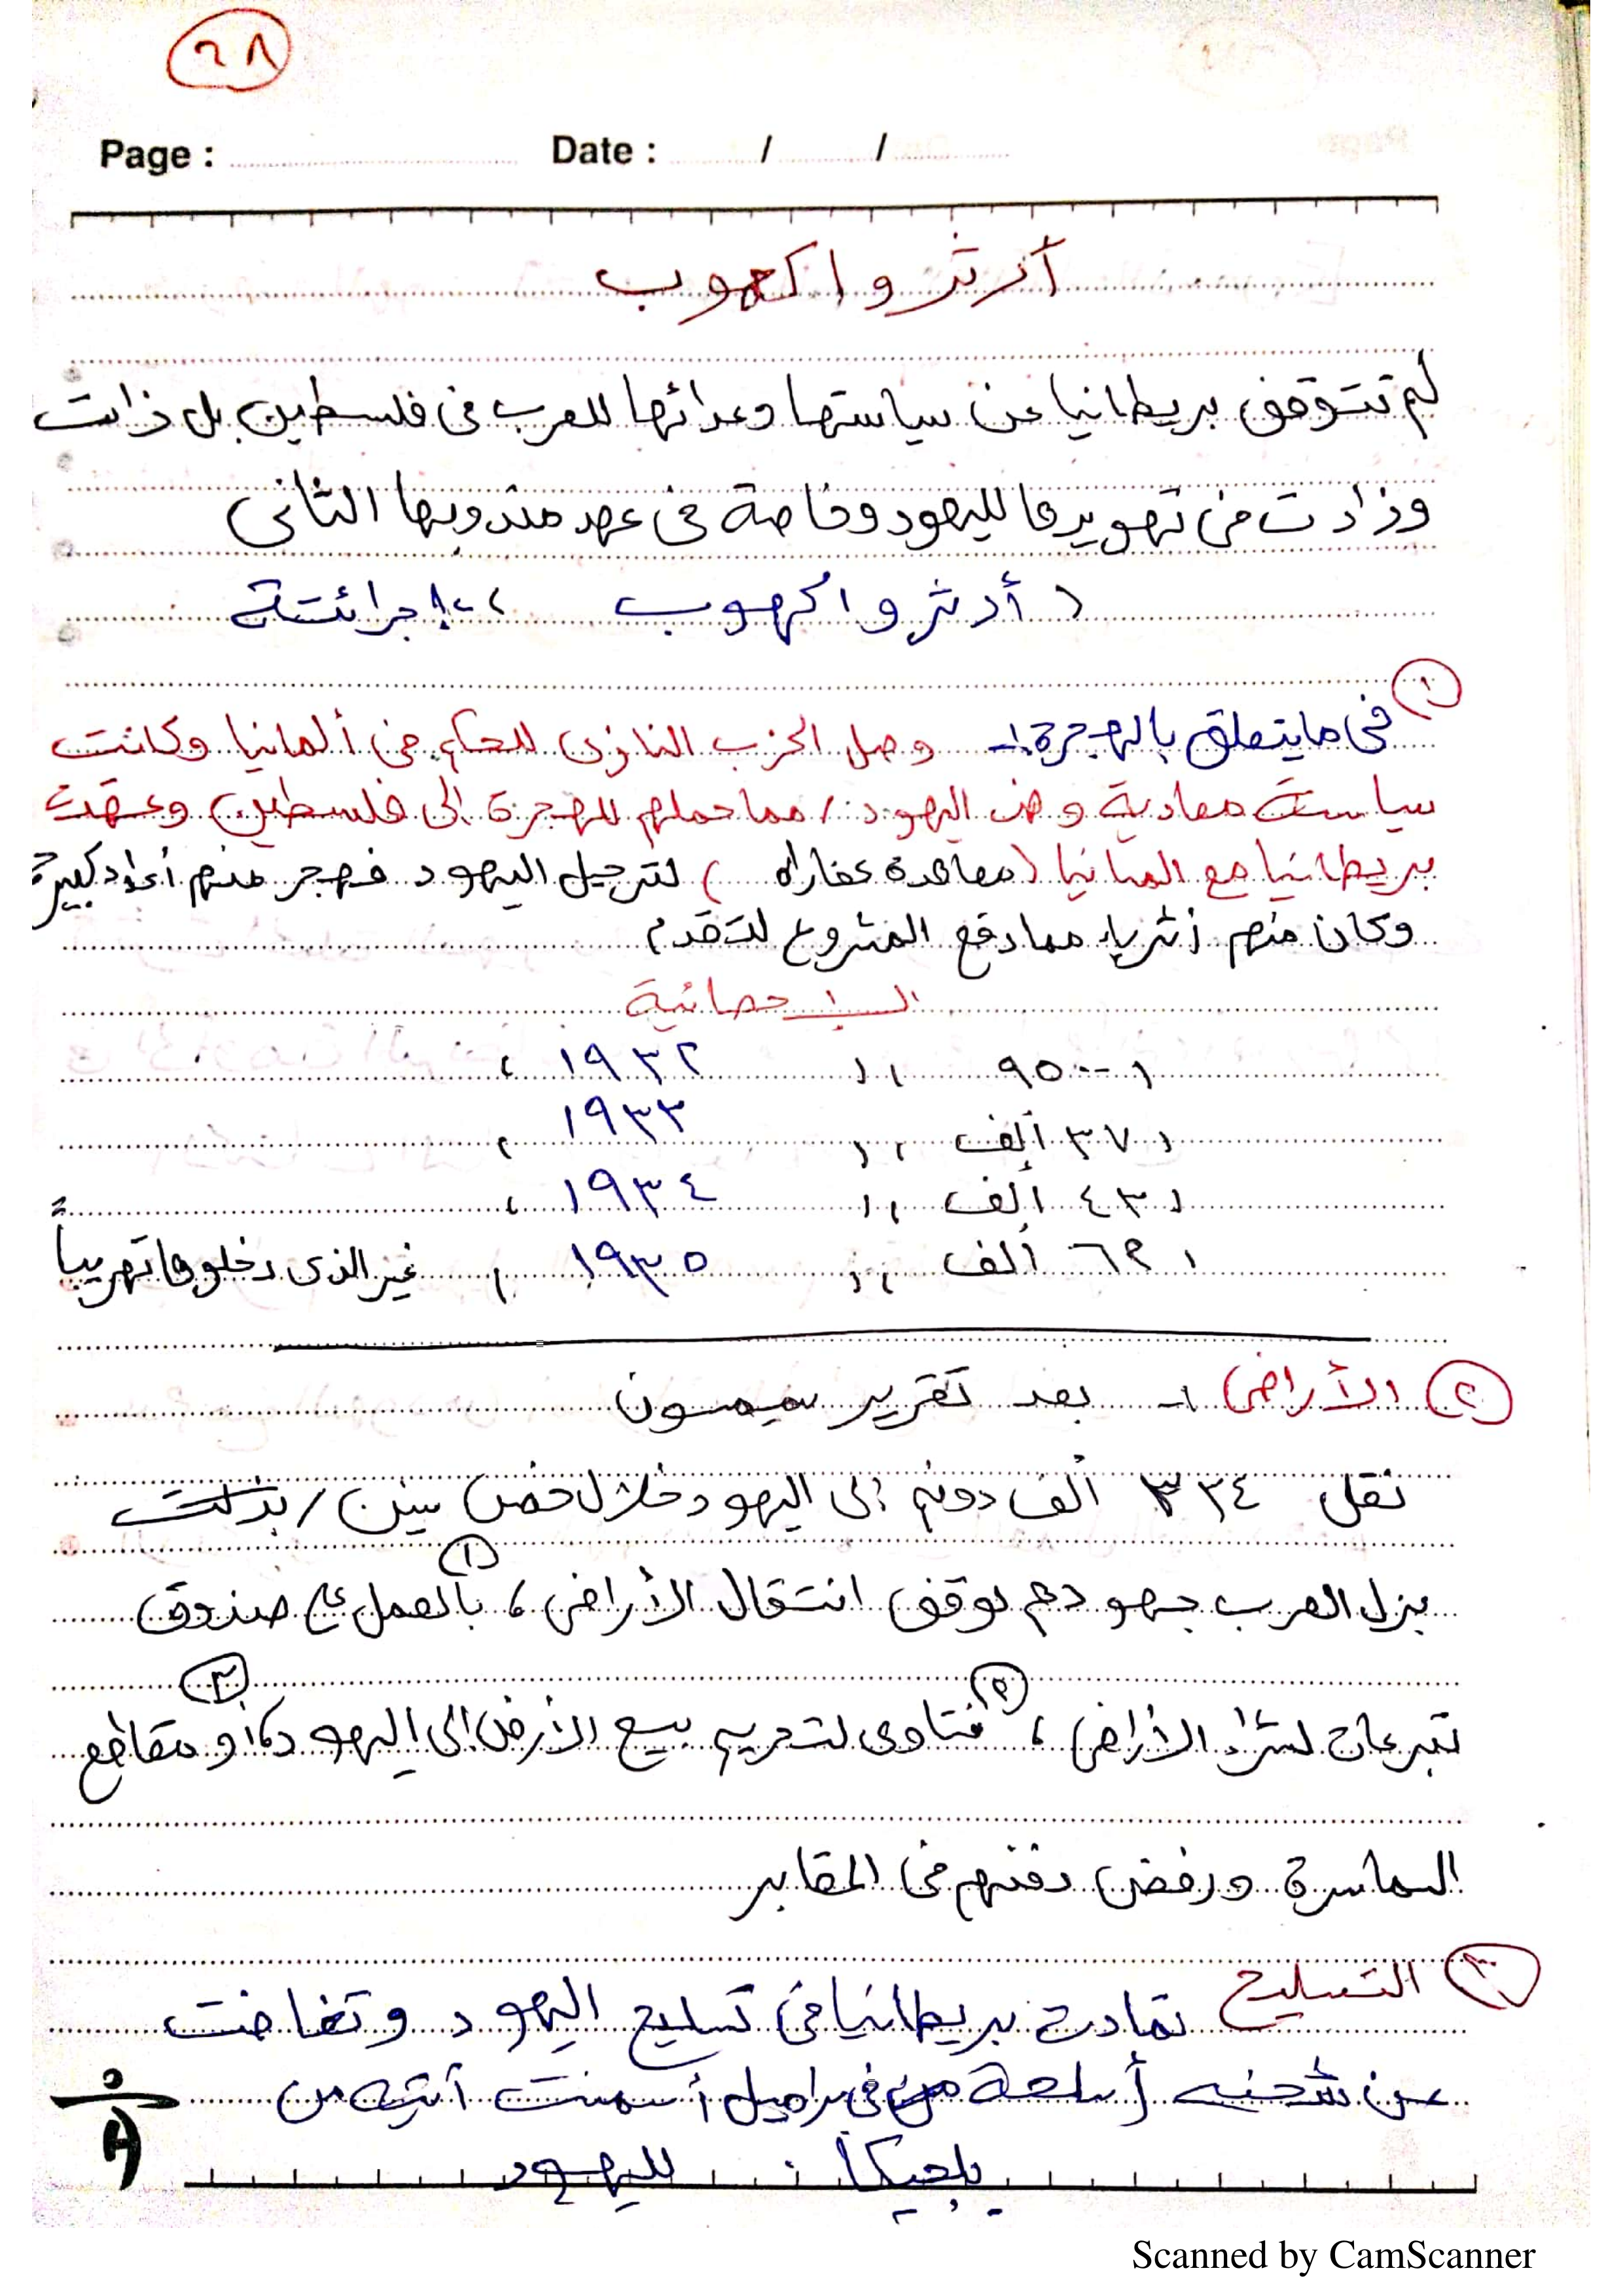 ٢٨
Page : Date : / /
أرثر واكهوب
لم تتوقف بريطانيا عن سياستها وعدائها للعرب فى فلسطين بل زادت
وزادت فى تهويدها لليهود وخاصة فى عهد مندوبها الثانى
( أرثر واكهوب ) ،، إجرائتة
١ فى ما يتعلق بالهجرة :- وصل الحزب النازى للحكم فى ألمانيا وكانت
سياستة معادية وضد اليهود / مما حملهم للهجرة الى فلسطين وعقدت
بريطانيا مع المانيا ( معاهدة عفاراه ) لترحيل اليهود فهجر منهم أعداد كبيرة
وكان منهم أثرياء مما دفع المشروع للتقدم
الإحصائية
( ٩٥٠٠ ) ( ١٩٣٢ )
( ٣٧ ألف ) ( ١٩٣٣ )
( ٤٣ ألف ) ( ١٩٣٤ )
( ٦٢ ألف ) ( ١٩٣٥ ) غير الذى دخلوها تهريباً
٢ الأراضى :- بعد تقرير سيمسون
نقل ٣٣٤ ألف دونم إلى اليهود خلال خمس سنين / بذلت
بزل العرب جهودهم لوقف انتقال الأراضى ، ١ بالعمل على صندوق
تبرعات لشراء الأراضى ، ٢ فتاوى لتحريم بيع الأرض إلى اليهود ، ٣ أو مقاطع
السماسرة ورفض دفنهم فى المقابر
٣ التسليح تمادت بريطانيا فى تسليح اليهود وتغاضت
عن شحنه أسلحة فى براميل أسمنت آتيه من
بلجيكا لليهود
Scanned by CamScanner